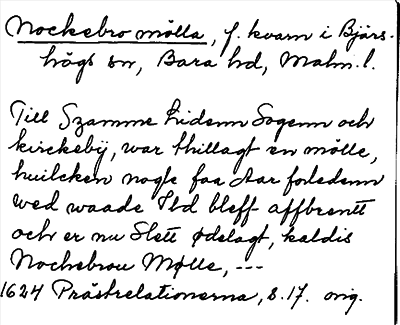 Nockebro mölla, f. kvarn i Bjärs-
högs sn, Bara hd, Malm. l.
Till Szamme Tidenn Sogenn och
kirckebÿ, war thillagt en mölle,
huilcken nogle faa Aar forledenn
wed waade Ild bleff affbrentt
och er nu Slett ødelagt, kaldis
Nochebrou Mølle, ---
1624 Prästrelationerna, s. 17. orig.